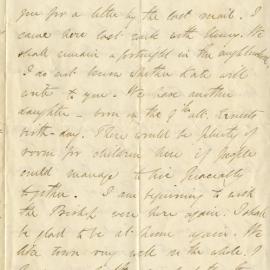 you for a letter by the last mail. I
came here last week with Henry. We
shall remain a fortnight in the neighbourhood
I do not know whether Kate will
write to you. We have another
daughter – born on the 9th ult. Ernest's
birth-day. There would be plenty of
room for children here if people
could manage to live peaceably
together. I am beginning to wish
the Bishop were here again. I shall
be glad to be at home again. We
like town very well on the whole. I